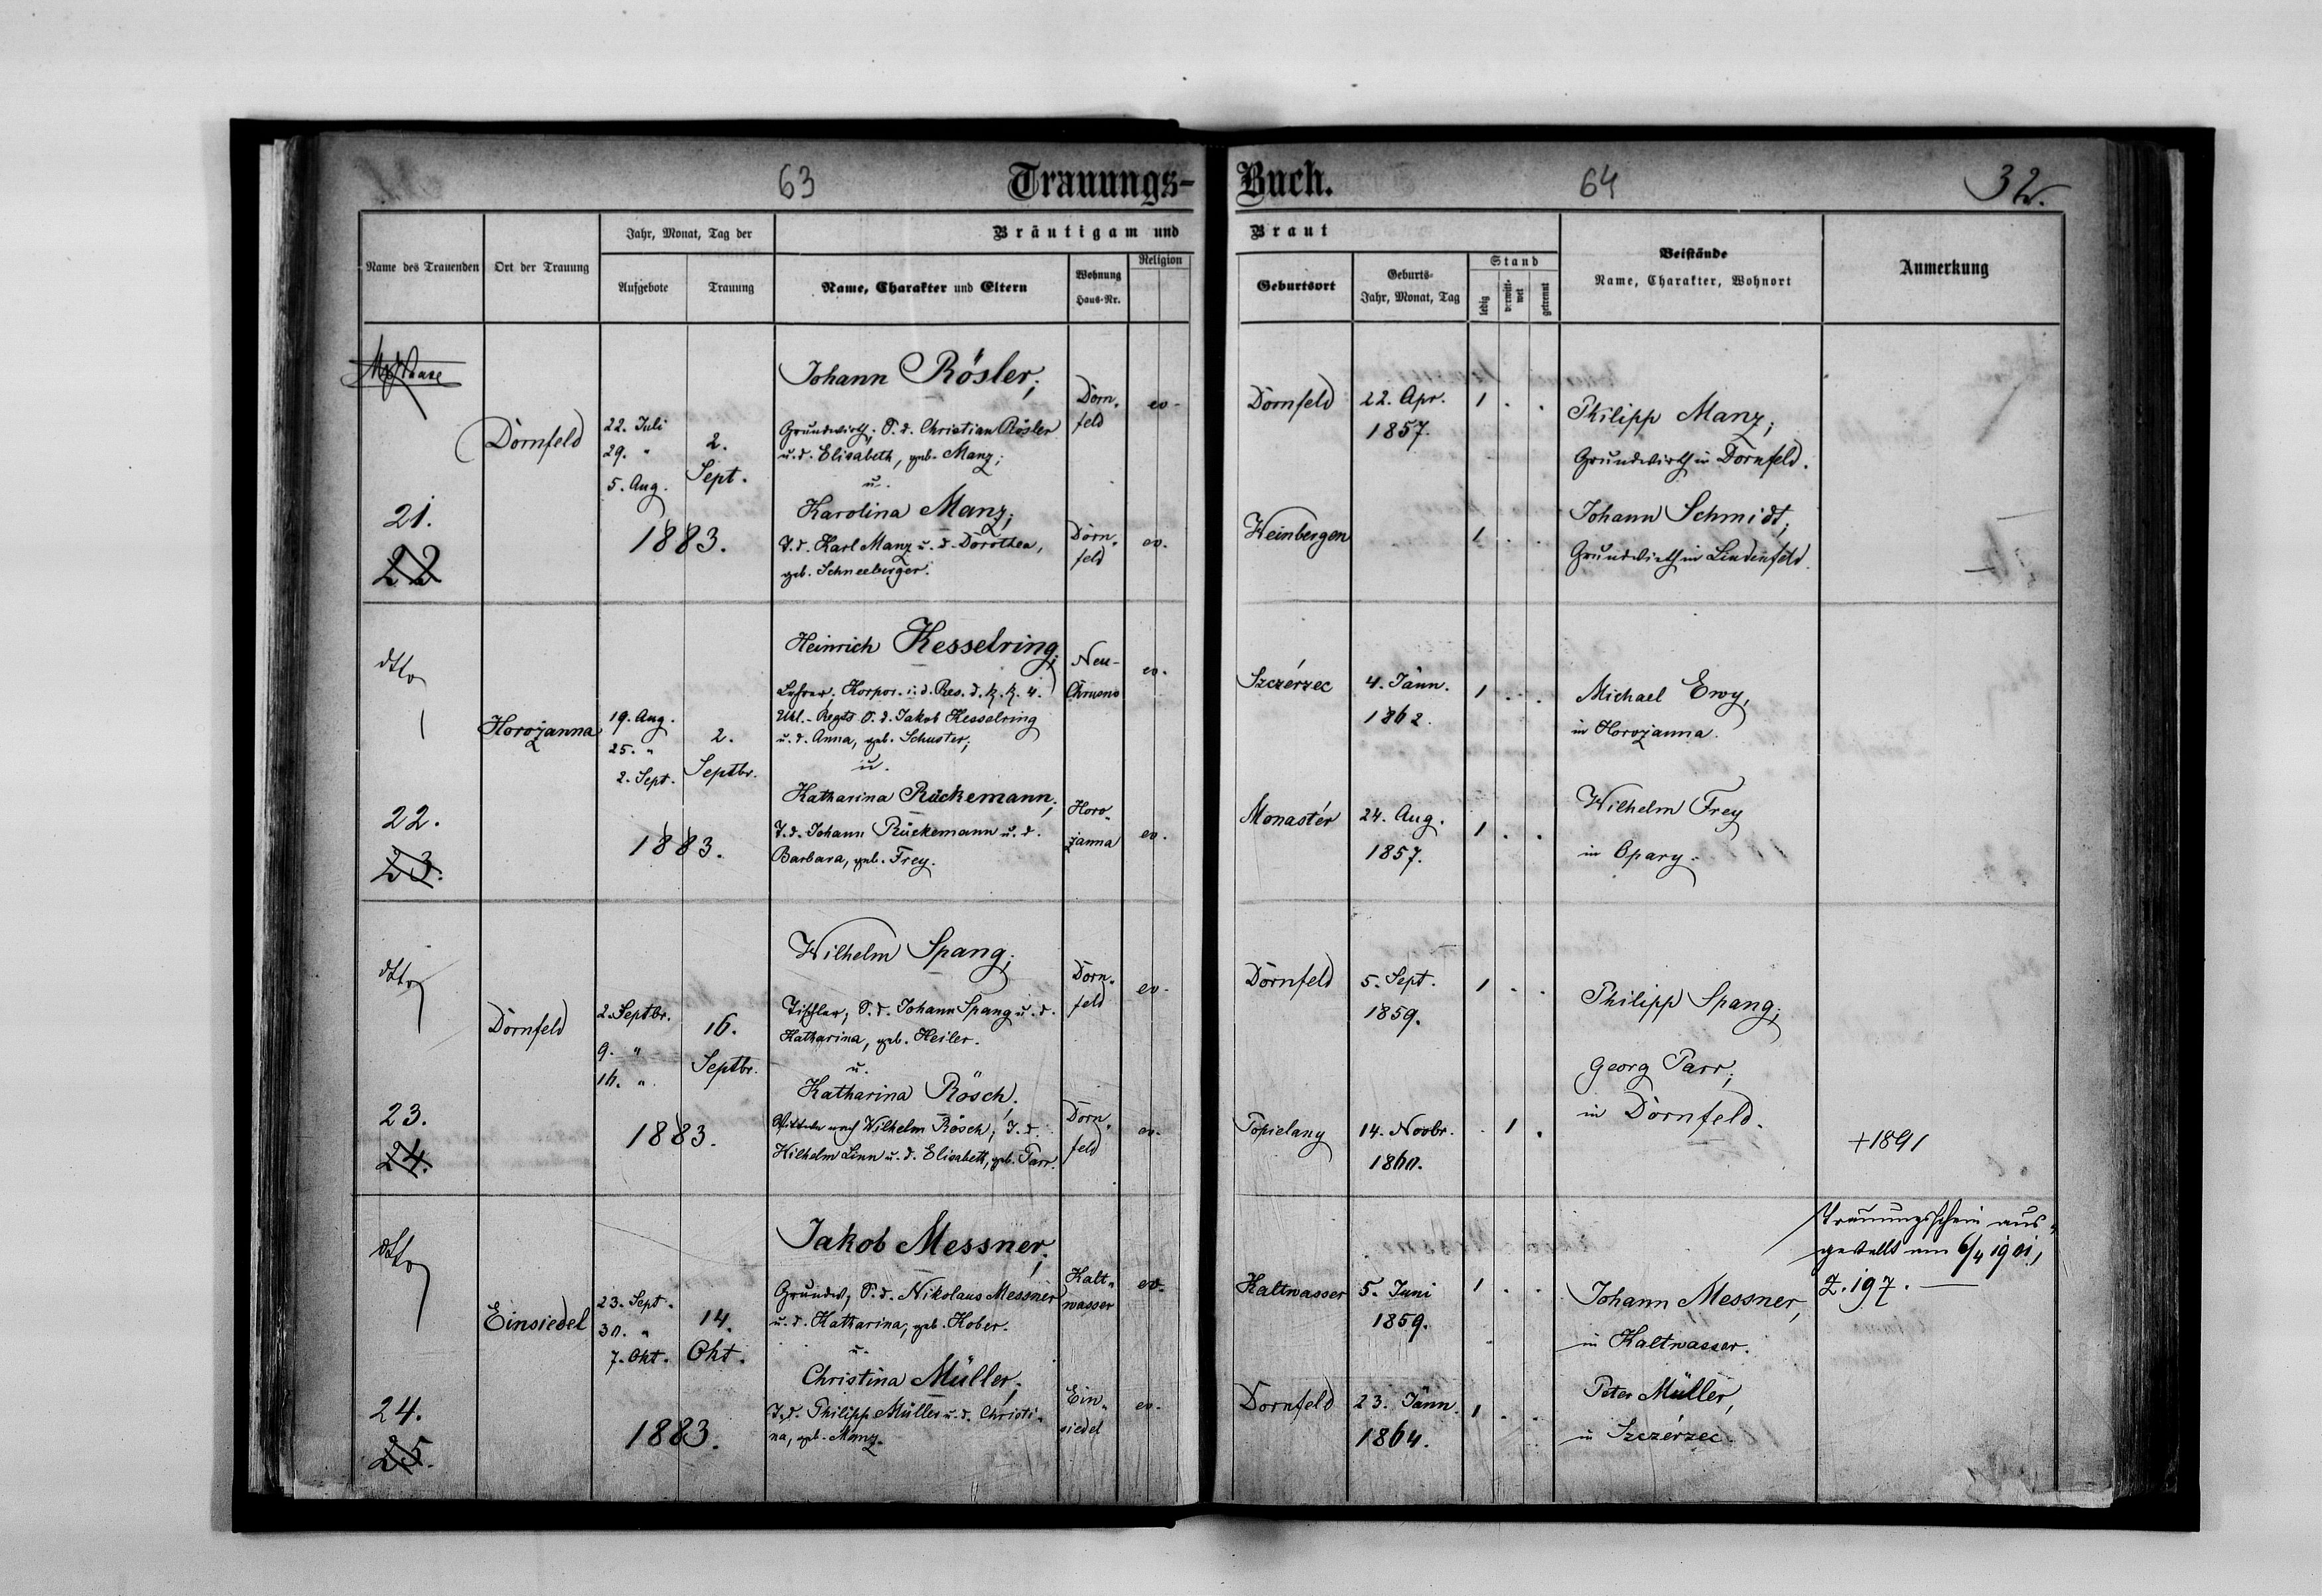 63 Trauungs- Buch. 64 32.
Jahr, Monat, Tag der
Bräutigam und Braut
Name des Trauenden
Ort der Trauung
Aufgebote
Trauung
Name, Charakter und Eltern
Wohnung
Haus-Nr.
Religion
Geburtsort
Geburts-
Jahr, Monat, Tag
Stand
ledig
verwitt-
wet
getrennt
Beistände
Name, Charakter, Wohnort
Anmerkung
21.
22
Dornfeld
22. Juli
29. "
5. Aug.
2.
Sept.
1883.
Johann Rösler;
Grundwirth; S. d. Christian Rösler
u. d. Elisabeth, geb. Manz;
u.
Karolina Manz;
T. d. Karl Manz u. d. Dorothea,
geb. Schneeberger.
Dorn-
feld
ev.
Dorn-
feld
ev.
Dornfeld
22. Apr.
1857.
1 . .
Weinbergen
1 . .
Philipp Manz;
Grundwirth in Dornfeld.
Johann Schmidt;
Grundwirth in Lindenfeld.
dtto
22.
23.
Horozanna
19. Aug.
25. "
2. Sept.
2.
Septbr.
1883.
Heinrich Kesselring;
Lehrer, Korpor. i. d. Res. d. k. k. 4.
Uhl.-Regts S. d. Jakob Kesselring
u. d. Anna, geb. Schuster;
u.
Katharina Rückemann;
T. d. Johann Rückemann u. d.
Barbara, geb. Frey.
Neu-
Chrusno
ev.
Horo-
zanna
ev.
Szczérzec
4. Jänn.
1862.
1 . .
Monastér
24. Aug.
1857.
1 . .
Michael Ewy,
in Horozanna.
Wilhelm Frey
in Opary.
dtto
23.
24.
Dornfeld
2. Septbr.
9. "
16. "
16.
Septbr.
1883.
Wilhelm Spang;
Tischler, S. d. Johann Spang u. d.
Katharina, geb. Heiler.
u.
Katharina Rösch.
Wittwe nach Wilhelm Rösch; T. d.
Wilhelm Linn u. d. Elisabeth, geb. Parr.
Dorn-
feld
ev.
Dorn-
feld
ev.
Dornfeld
5. Sept.
1859.
1 . .
Popielany
14. Novbr.
1860.
. 1 .
Philipp Spang;
Georg Parr;
in Dornfeld.
+1891
dtto
24.
25.
Einsiedel
23. Sept.
30. "
7. Okt.
14.
Okt.
1883.
Jakob Messner;
Grundw, S. d. Nikolaus Messner
u. d. Katharina, geb. Kober.
u.
Christina Müller;
T. d. Philipp Müller u. d. Christi-
na, geb. Manz.
Kalt-
wasser
ev.
Ein-
siedel
ev.
Kaltwasser
5. Juni
1859.
1 . .
Dornfeld
23. Jänn.
1864.
1 . .
Johann Messner,
in Kaltwasser.
Peter Müller,
in Szczérzec.
Trauungsschein aus-
gestellt am 6/4 1901,
Z. 197.